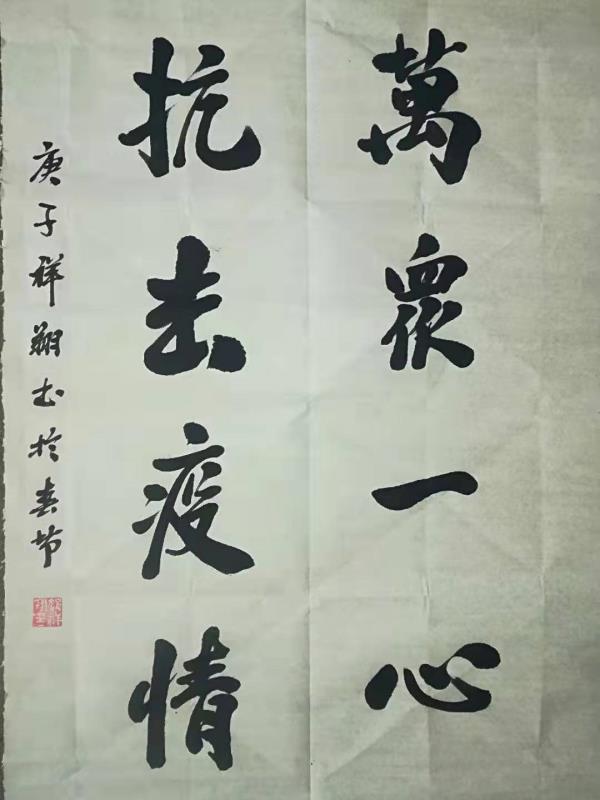 萬衆一心
抗去疫情
庚子祥翔書於春节